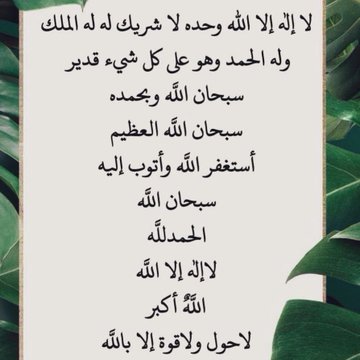 لا إله إلا الله وحده لا شريك له له الملك
وله الحمد وهو على كل شيء قدير
سبحان اللَّه وبحمده
سبحان اللَّه العظيم
أستغفر اللَّه وأتوب إليه
سبحان اللَّه
الحمدللَّه
لاإله إلا اللَّه
اللَّهُ أكبر
لاحول ولاقوة إلا باللَّه